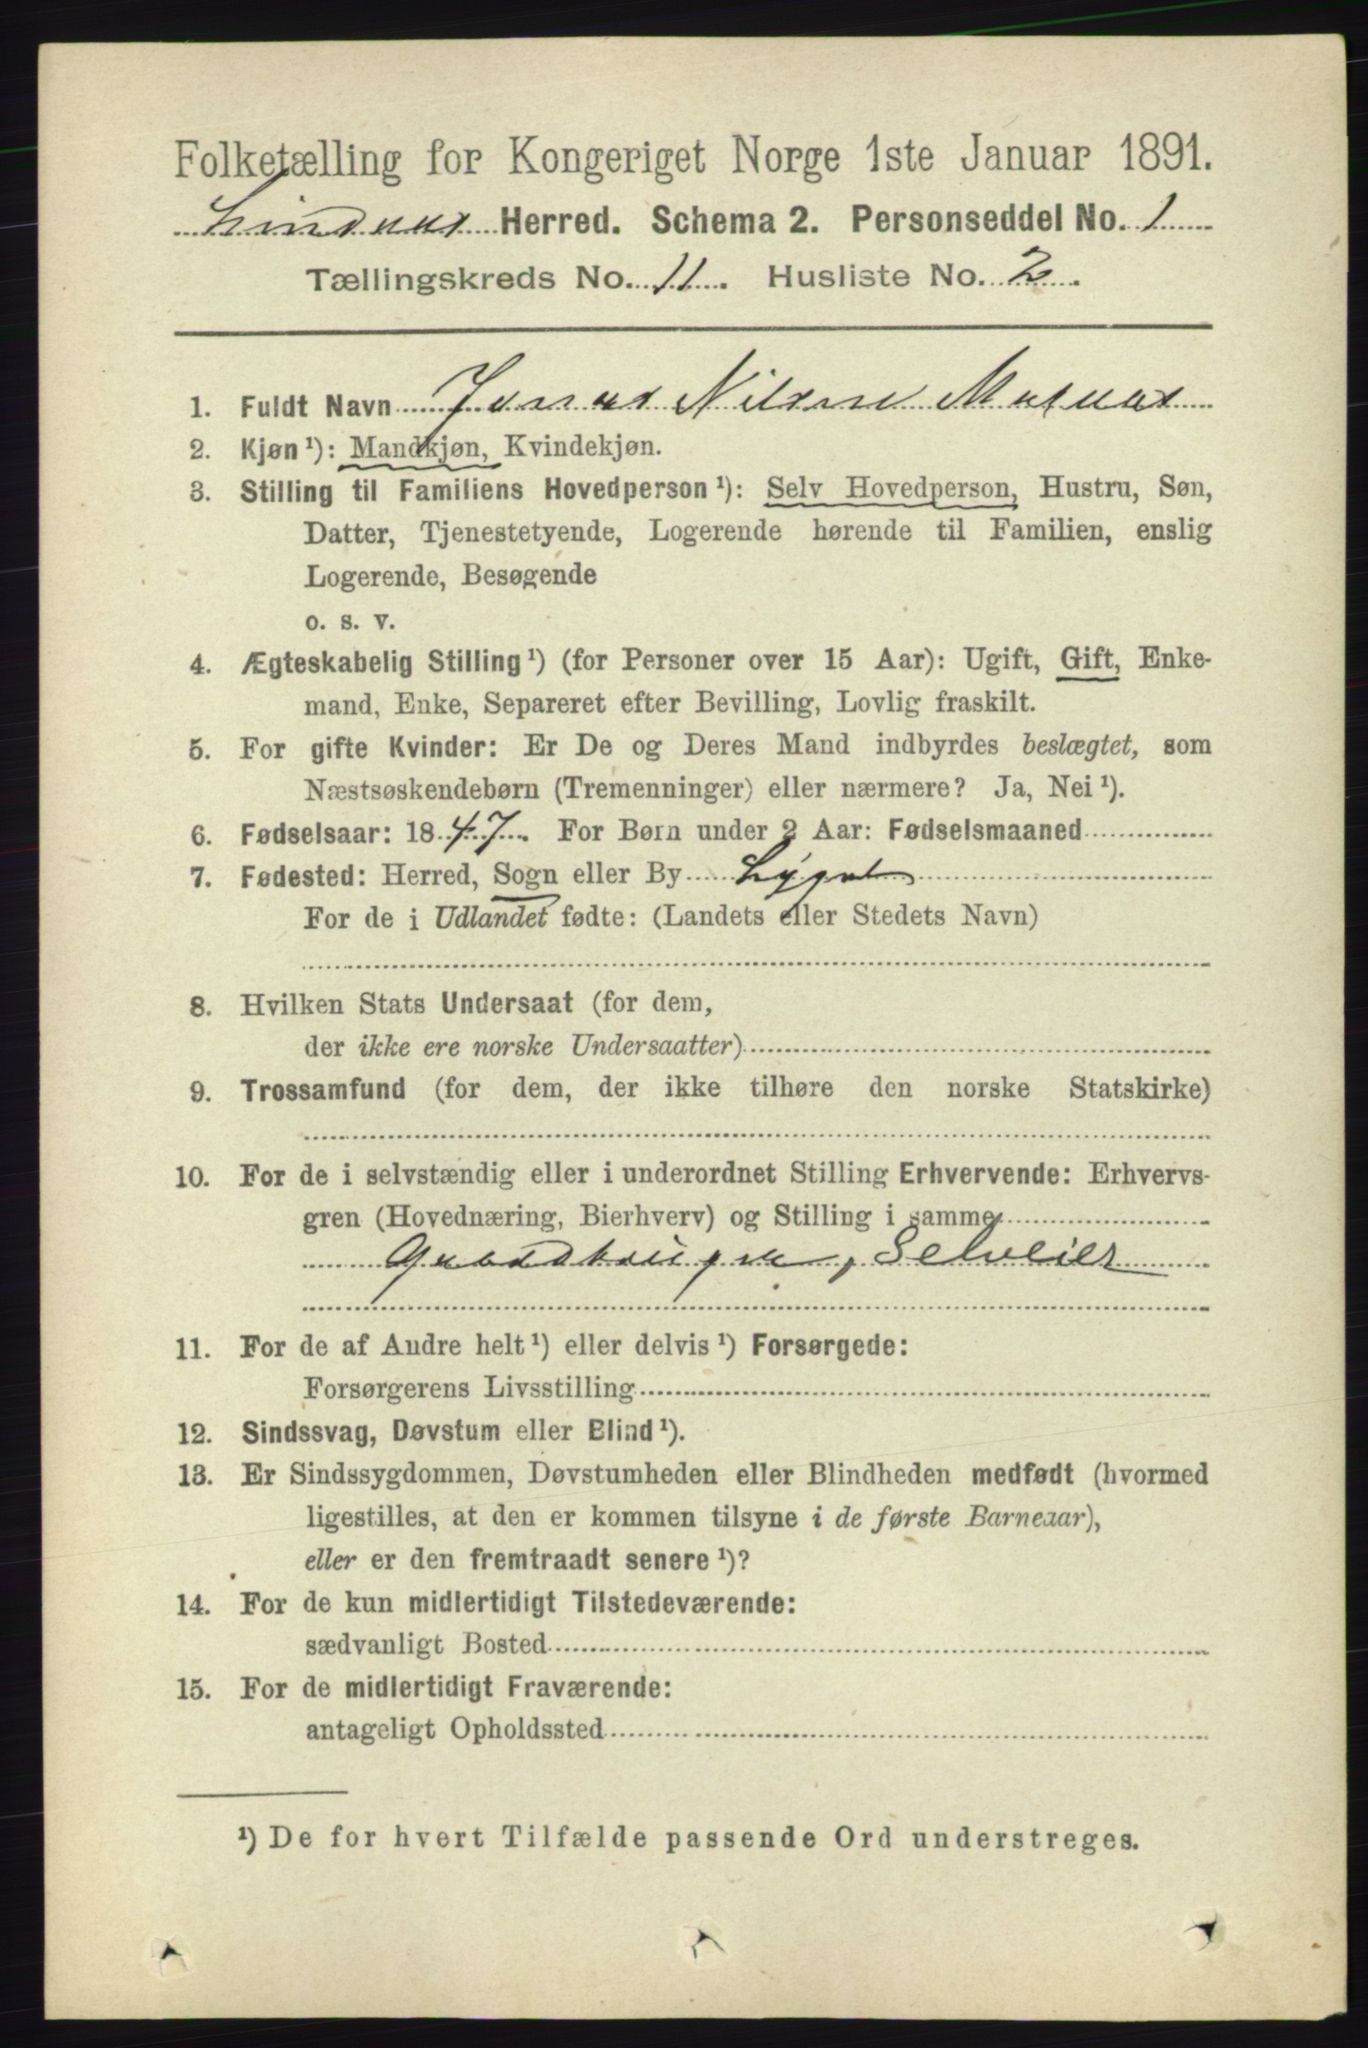 Folketælling for Kongeriget Norge 1ste Januar 1891.
Lindaas Herred. Schema 2. Personseddel No. 1
Tællingskreds No. 11. Husliste No. 2.
1. Fuldt Navn Jonas Nilsen Mataas
2. Kjøn¹): Mandkjøn, Kvindekjøn.
3. Stilling til Familiens Hovedperson¹): Selv Hovedperson, Hustru, Søn,
Datter, Tjenestetyende, Logerende hørende til Familien, enslig
Logerende, Besøgende
o. s. v.
4. Ægteskabelig Stilling¹) (for Personer over 15 Aar): Ugift, Gift, Enke-
mand, Enke, Separeret efter Bevilling, Lovlig fraskilt.
5. For gifte Kvinder: Er De og Deres Mand indbyrdes beslægtet, som
Næstsøskendebørn (Tremenninger) eller nærmere? Ja, Nei¹).
6. Fødselsaar: 1847. For Børn under 2 Aar: Fødselsmaaned
7. Fødested: Herred, Sogn eller By Lygre
For de i Udlandet fødte: (Landets eller Stedets Navn)
8. Hvilken Stats Undersaat (for dem,
der ikke ere norske Undersaatter)
9. Trossamfund (for dem, der ikke tilhøre den norske Statskirke)
10. For de i selvstændig eller i underordnet Stilling Erhvervende: Erhvervs-
gren (Hovednæring, Bierhverv) og Stilling i samme
Gaardbruger, Selveier
11. For de af Andre helt¹) eller delvis¹) Forsørgede:
Forsørgerens Livsstilling
12. Sindssvag, Døvstum eller Blind¹).
13. Er Sindssygdommen, Døvstumheden eller Blindheden medfødt (hvormed
ligestilles, at den er kommen tilsyne i de første Barneaar),
eller er den fremtraadt senere¹)?
14. For de kun midlertidigt Tilstedeværende:
sædvanligt Bosted
15. For de midlertidigt Fraværende:
antageligt Opholdssted
¹) De for hvert Tilfælde passende Ord understreges.